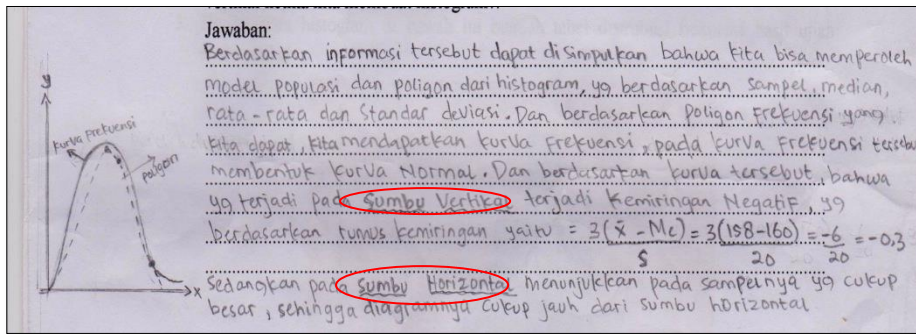 Jawaban:
Berdasarkan informasi tersebut dapat disimpulkan bahwa kita bisa memperoleh
model populasi dan poligon dari histogram, yg berdasarkan sampel, median,
rata-rata dan Standar deviasi. Dan berdasarkan Poligon Frekuensi yang
kita dapat, kita mendapatkan kurva Frekuensi, pada kurva Frekuensi tersebu
membentuk kurva Normal. Dan berdasarkan kurva tersebut, bahwa
yg terjadi pada Sumbu Vertikal terjadi Kemiringan Negatif, yg
berdasarkan rumus kemiringan yaitu = 3(x̄ - Me)/S = 3(158-160)/20 = -6/20 = -0,3
Sedangkan pada Sumbu Horizontal menunjukkan pada sampelnya yg cukup
besar, sehingga diagramnya cukup jauh dari sumbu horizontal
y
kurva Frekuensi
poligon
x